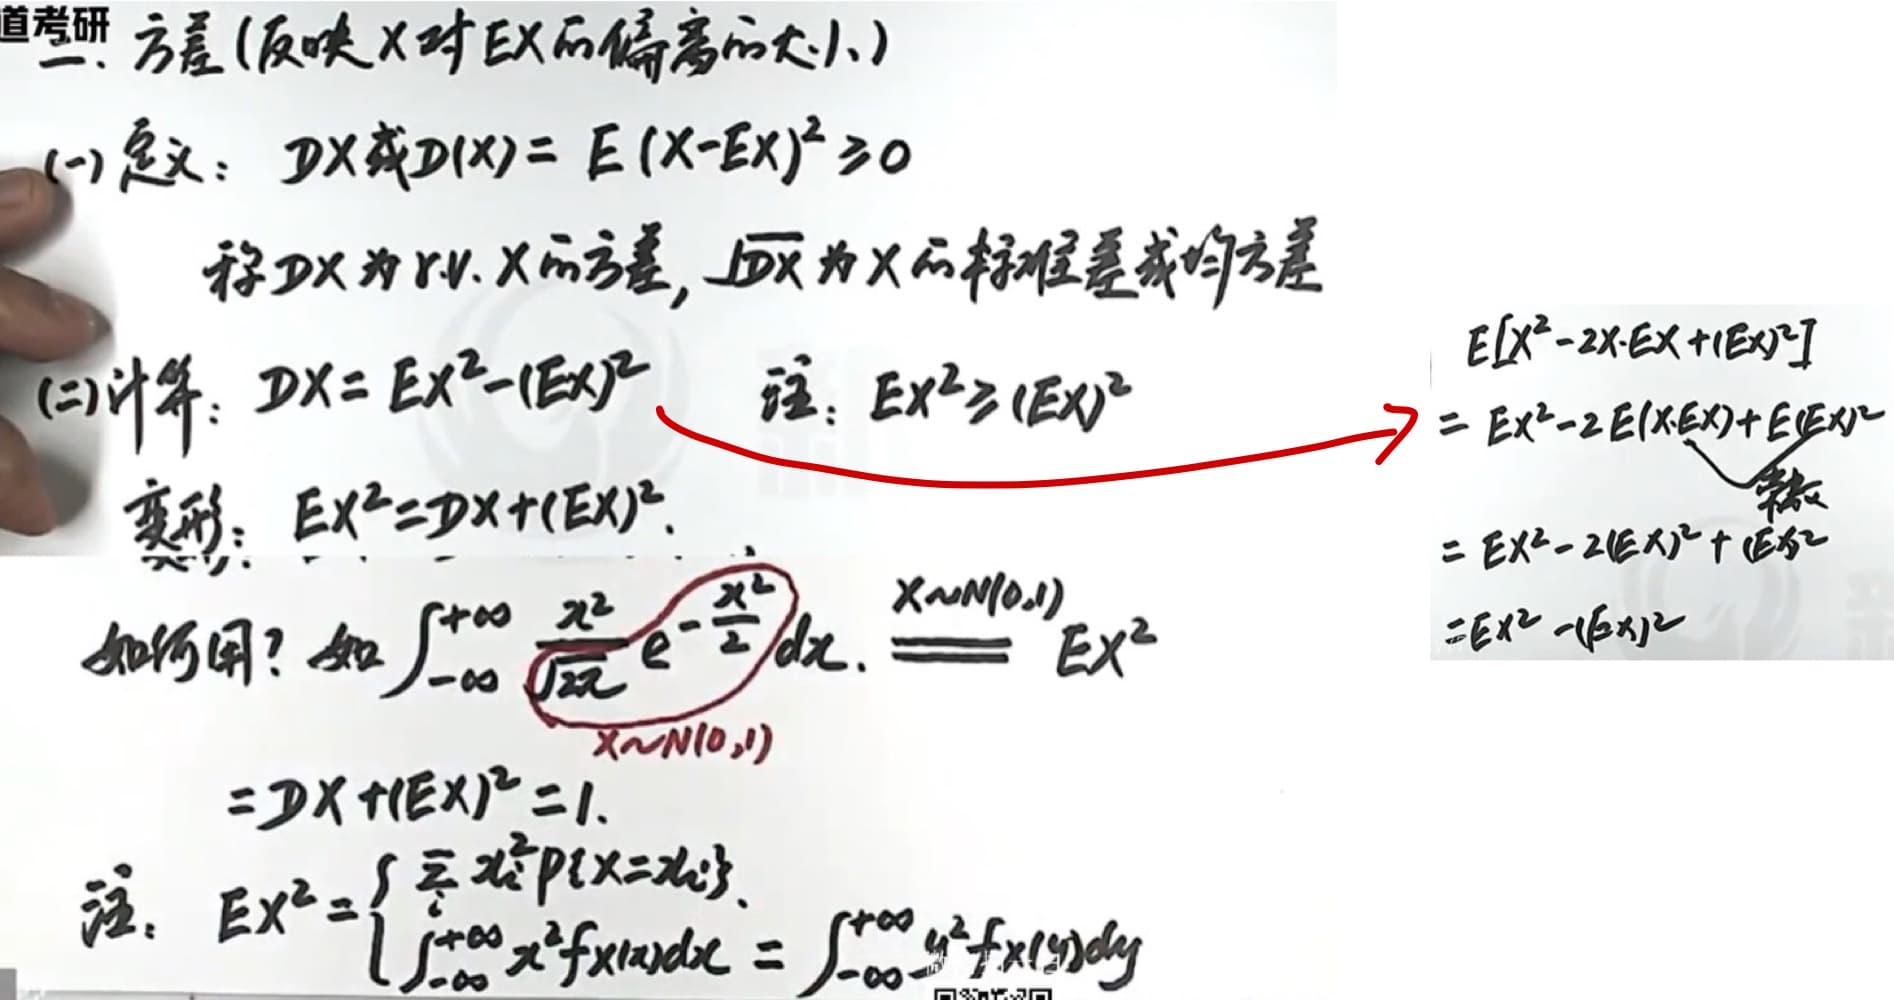 道考研
二、方差(反映X对EX的偏离的大小)
(一)定义: DX或D(X)= E(X-EX)²≥0
称DX为r.v.X的方差, √DX为X的标准差或均方差
(二)计算: DX= EX²-(EX)² 注: EX²≥(EX)²
变形: EX²=DX+(EX)².
如何用? 如 ∫_{-∞}^{+∞} x²/√2π e^{-x²/2} dx. X~N(0,1) ═ EX²
X~N(0,1)
=DX+(EX)²=1.
注: EX²={ Σ_i x_i² P{X=x_i}.
∫_{-∞}^{+∞} x² f_X(x)dx = ∫_{-∞}^{+∞} y² f_X(y)dy
E[X²-2X·EX+(EX)²]
= EX²-2E(X·EX)+E(EX)²
常数
= EX²-2(EX)²+(EX)²
=EX²-(EX)²